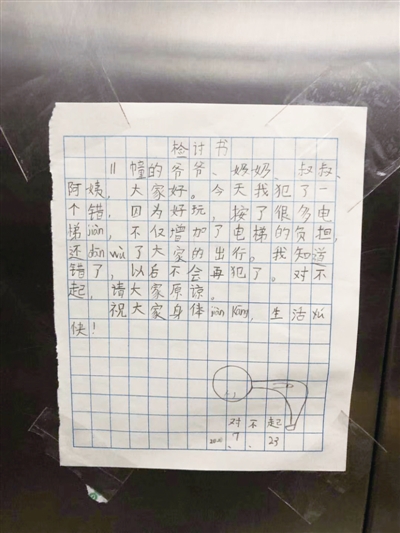 检讨书
11幢的爷爷、奶奶、叔叔、
阿姨,大家好。今天我犯了一
个错,因为好玩,按了很多电
梯jiàn,不仅增加了电梯的负担,
还dān wù了大家的出行。我知道
错了,以后不会再犯了。对不
起,请大家原谅。
祝大家身体jiàn kāng,生活yú
快!
对不起
7.23